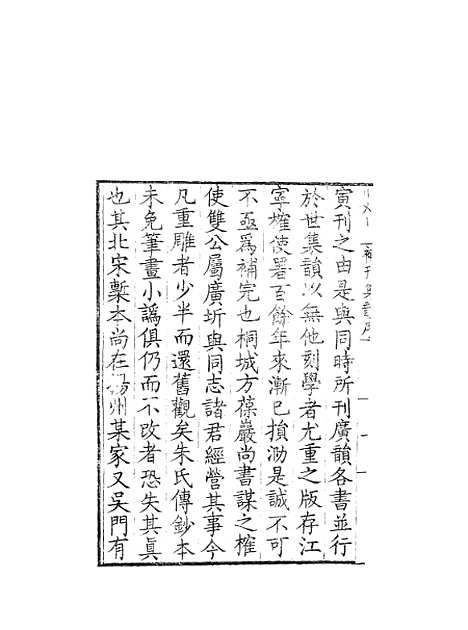 寅刊之由是與同時所刊廣韻各書並行
於世集韻以無他刻學者尤重之版存江
寧榷使署百餘年來漸已損泐是誠不可
不亟爲補完也桐城方葆巖尚書謀之榷
使雙公屬廣圻與同志諸君經營其事今
凡重雕者少半而還舊觀矣朱氏傳鈔本
未免筆畫小譌俱仍而不改者恐失其眞
也其北宋槧本尚在揚州某家又吳門有